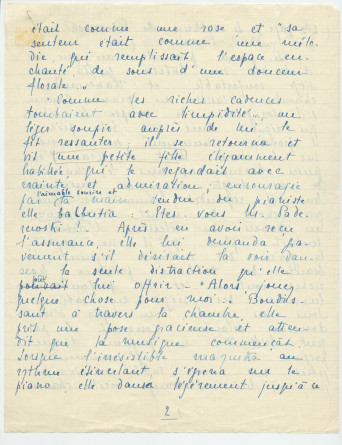 était comme une rose et "sa
senteur était comme une mélo-
die qui remplissait l'espace en-
chanté de sons d'une douceur
florale..
Comme les riches cadences
tombaient avec timpidité.. un
léger soupir auprès de lui le
fit ressauter; il se retourna et
vit une petite fille élégamment
habillée, qui le regardait avec
crainte et admiration, encouragée
l'aimable sourire et
par la main tendue du pianiste
elle balbutia: "Etes vous Mr Pade-
rewski?.. Après en avoir reçu
l'assurance, elle lui demanda gra-
vement s'il désirait la voir dan-
ser, la seule distraction qu'elle
pouvait lui offrir. - "Alors jouez
quelque chose pour moi.. Bondis-
sant à travers la chambre, elle
prit une pose gracieuse et atten-
dit que la musique commençât.
Lorsque l'irrésistible mazurka au
rythme étincelant, s'égrena sur le
piano, elle dansa légèrement jusqu'à ce
2